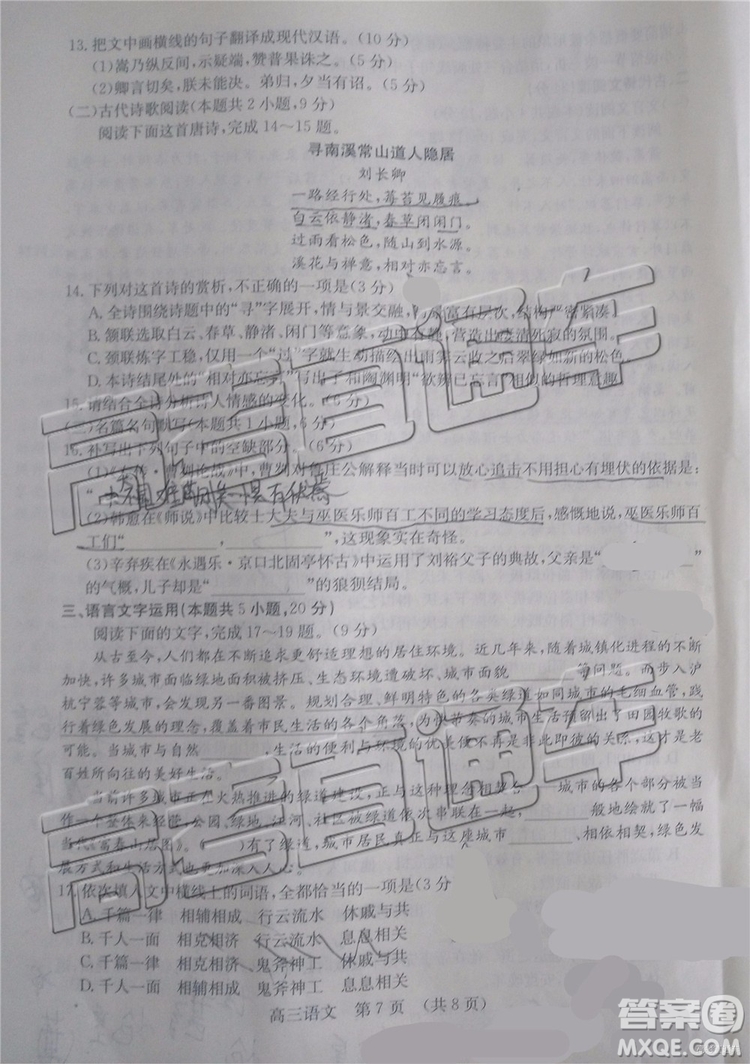 13.把文中画横线的句子翻译成现代汉语。(10分)
(1)嵩乃纵反间,示疑端,赞普果诛之。(5分)
(2)卿言切矣,朕未能决。弟归,夕当有诏。(5分)
(二)古代诗歌阅读(本题共2小题,9分)
阅读下面这首唐诗,完成14～15题。
寻南溪常山道人隐居
刘长卿
一路经行处,莓苔见屐痕。
白云依静渚,春草闭闲门。
过雨看松色,随山到水源。
溪花与禅意,相对亦忘言。
14.下列对这首诗的赏析,不正确的一项是(3分)
A.全诗围绕诗题中的“寻”字展开,情与景交融,富有层次,结构严密紧凑
B.颔联选取白云、春草、静渚、闲门等意象,动中有静,营造出凄清死寂的氛围。
C.颈联炼字工稳,仅用一“过”字就生动描绘出雨霁云收之后翠绿如新的松色
D.本诗结尾处的“相对亦忘言”写出了和陶渊明“欲辨已忘言”相似的哲理意趣
15.请结合全诗分析诗人情感的变化。(6分)
(三)名篇名句默写(本题共1小题,6分)
16.补写出下列句子中的空缺部分。(6分)
(1)《左传·曹刿论战》中,曹刿向鲁庄公解释当时可以放心追击不用担心有埋伏的依据是:
“
(2)韩愈在《师说》中比较士大夫与巫医乐师百工不同的学习态度后,感慨地说,巫医乐师百
工们“________,________”,这现象实在奇怪。
(3)辛弃疾在《永遇乐·京口北固亭怀古》中运用了刘裕父子的典故,父亲是“
的气概,儿子却是“________,________”的狼狈结局。
三、语言文字运用(本题共5小题,20分)
阅读下面的文字,完成17～19题。(9分)
从古至今,人们都在不断追求更舒适理想的居住环境。近几年来,随着城镇化进程的不断
加快,许多城市面临绿地面积被挤压、生态环境遭受破坏、城市面貌________等问题。而步入沪
杭宁蓉等城市,我们会发现另一番图景。规划合理、鲜明特色的各类绿道如同城市的毛细血管,践
行着绿色发展的理念,覆盖着市民生活的各个角落,为快节奏的城市生活预留出了田园牧歌的
可能。当城市与自然________,生活的便利与环境的优美不再是非此即彼的关系,这才是老
百姓所向往的美好生活。
当前许多城市正在火热推进的绿道建设,其实质________城市的各个部分被当
作一个整体来经营,田园、绿地、江河、社区被绿道依次串联在一起,________般地绘就了一幅
当代《富春山居图》。(  )有了绿道,城市居民真正与这座城市________、相依相契,绿色发
展方式和生活方式也
17.依次填入文中横线上的词语,全都恰当的一项是(3分
A.千篇一律 相辅相成 行云流水 休戚与共
B.千人一面 相克相济 行云流水 息息相关
C.千篇一律 相克相济 鬼斧神工 休戚与共
D.千人一面 相辅相成 鬼斧神工 息息相关
高三语文 第7页 (共8页)
高考直通车
高考直通车
答案圈
MXQE.COM